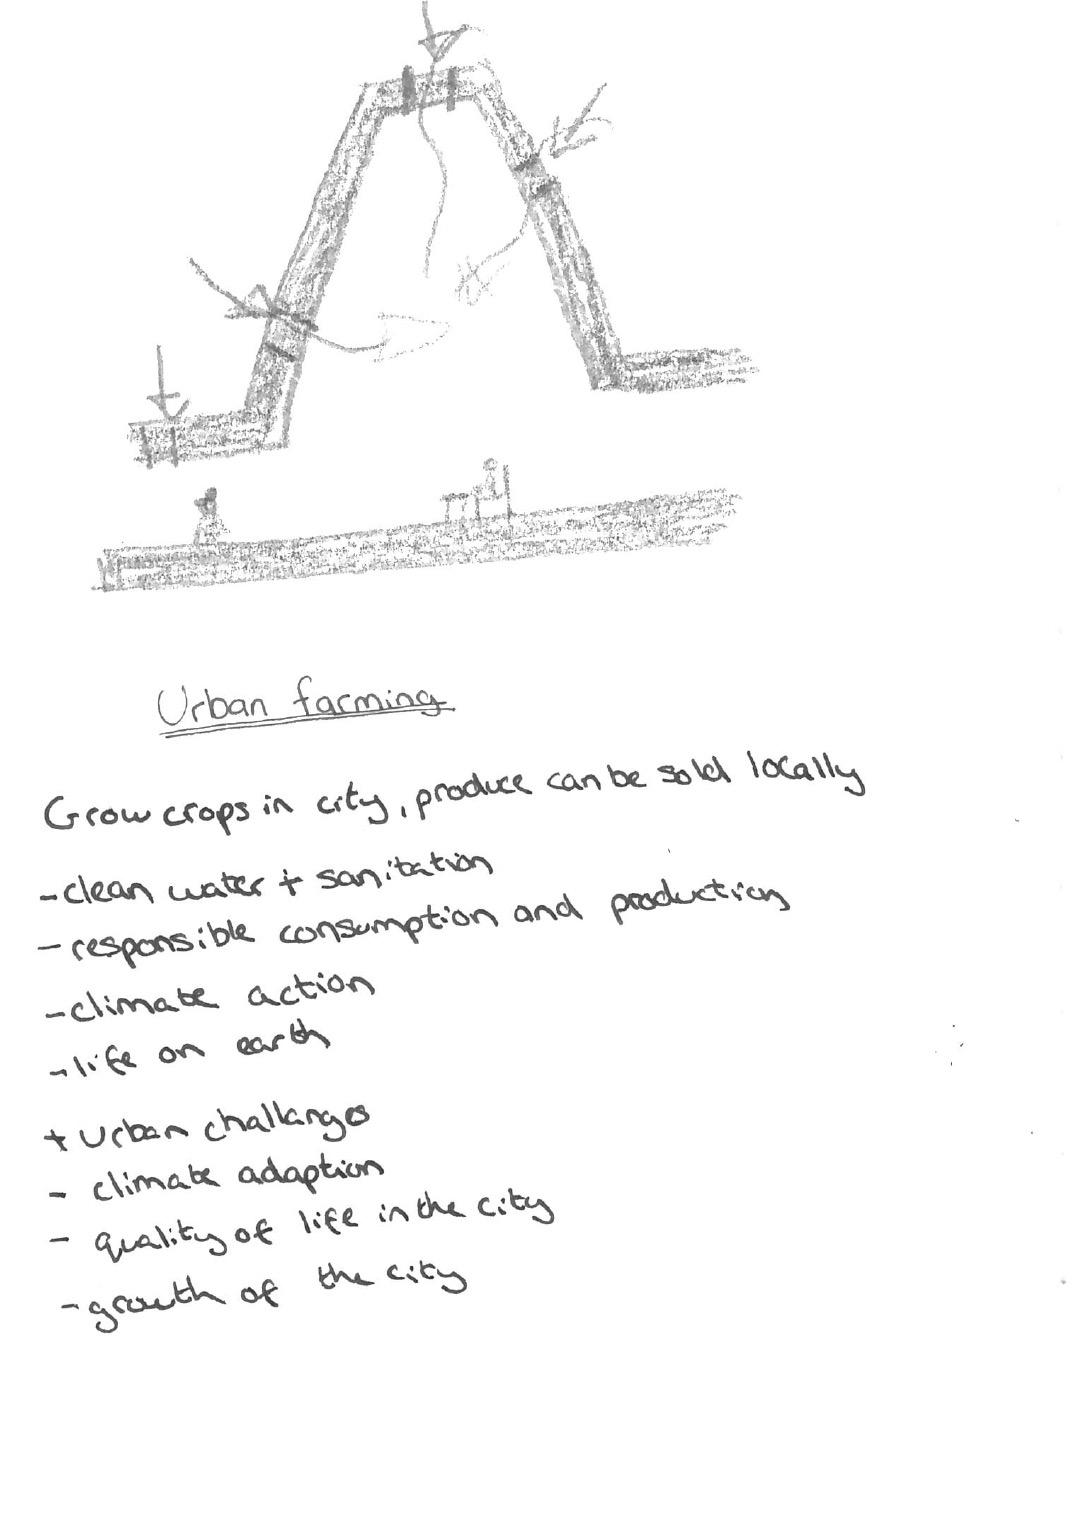 Urban farming
Grow crops in city, produce can be sold locally
- clean water + sanitation
- responsible consumption and production
- climate action
- life on earth
+ Urban challanges
- climate adaption
- quality of life in the city
- growth of the city